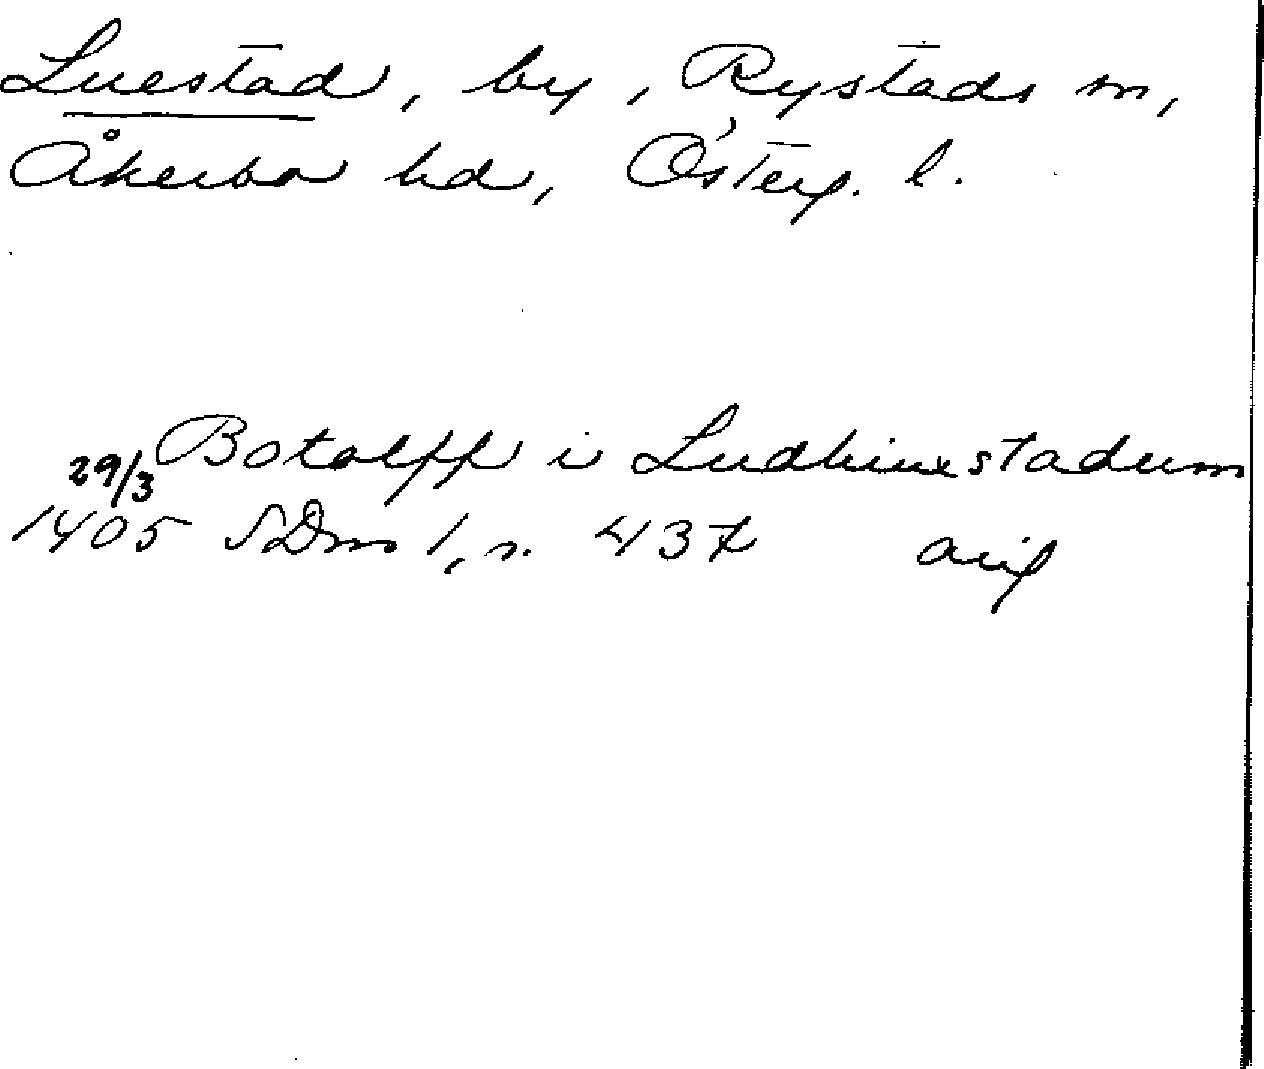 Luestad, by, Rystads sn,
Åkerbo hd, Österg. l.
Botolff i Ludhinxstadum
29/3
1405 SDns 1, s. 437 avig